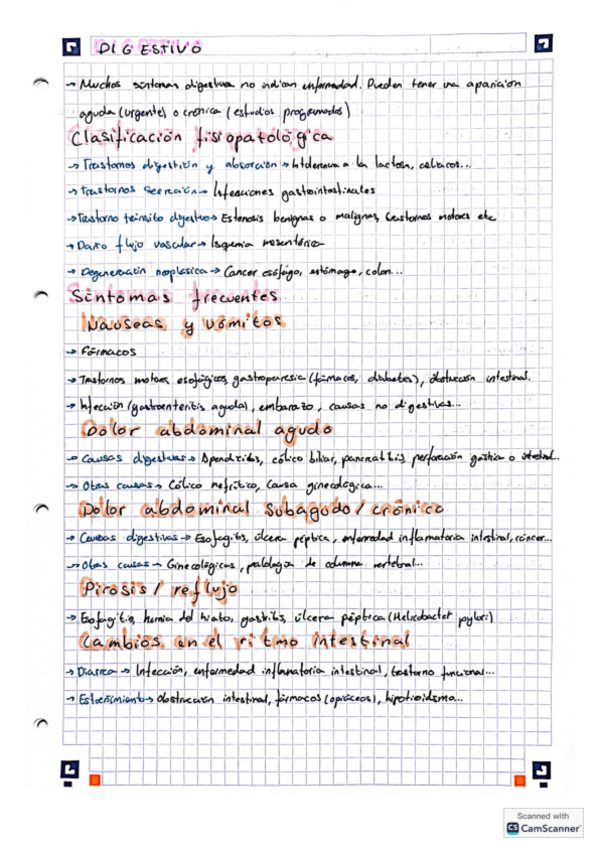 DIGESTIVO
→ Muchos síntomas digestivos no indican enfermedad. Pueden tener una aparición
aguda (urgente) o crónica (estudios programados)
Clasificación fisiopatológica
→ Trastornos digestión y absorción → Intolerancia a la lactosa, celiacos...
→ Trastornos secreción → Infecciones gastrointestinales
→ Trastorno tránsito digestivo → Estenosis benignas o malignas, trastornos motores etc
→ Daño flujo vascular → Isquemia mesentérica
→ Degeneración neoplásica → Cancer esófago, estómago, colon...
Síntomas frecuentes
Nauseas y vómitos
→ Fármacos
→ Trastornos motores esofágicos, gastroparesia (fármacos, diabetes), obstrucción intestinal.
→ Infección (gastroenteritis aguda), embarazo, causas no digestivas...
Dolor abdominal agudo
→ Causas digestivas → Apendicitis, cólico biliar, pancreatitis, perforación gástrica o intestinal...
→ Otras causas → Cólico nefrítico, causa ginecológica...
Dolor abdominal subagudo / crónico
→ Causas digestivas → Esofagitis, úlcera péptica, enfermedad inflamatoria intestinal, cáncer...
→ Otras causas → Ginecológicas, patología de columna vertebral...
Pirosis / reflujo
→ Esofagitis, hernia del hiato, gastritis, úlcera péptica (Helicobacter pylori)
Cambios en el ritmo intestinal
→ Diarrea → Infección, enfermedad inflamatoria intestinal, trastorno funcional...
→ Estreñimiento → obstrucción intestinal, fármacos (opiáceos), hipotiroidismo...
Scanned with
CS CamScanner